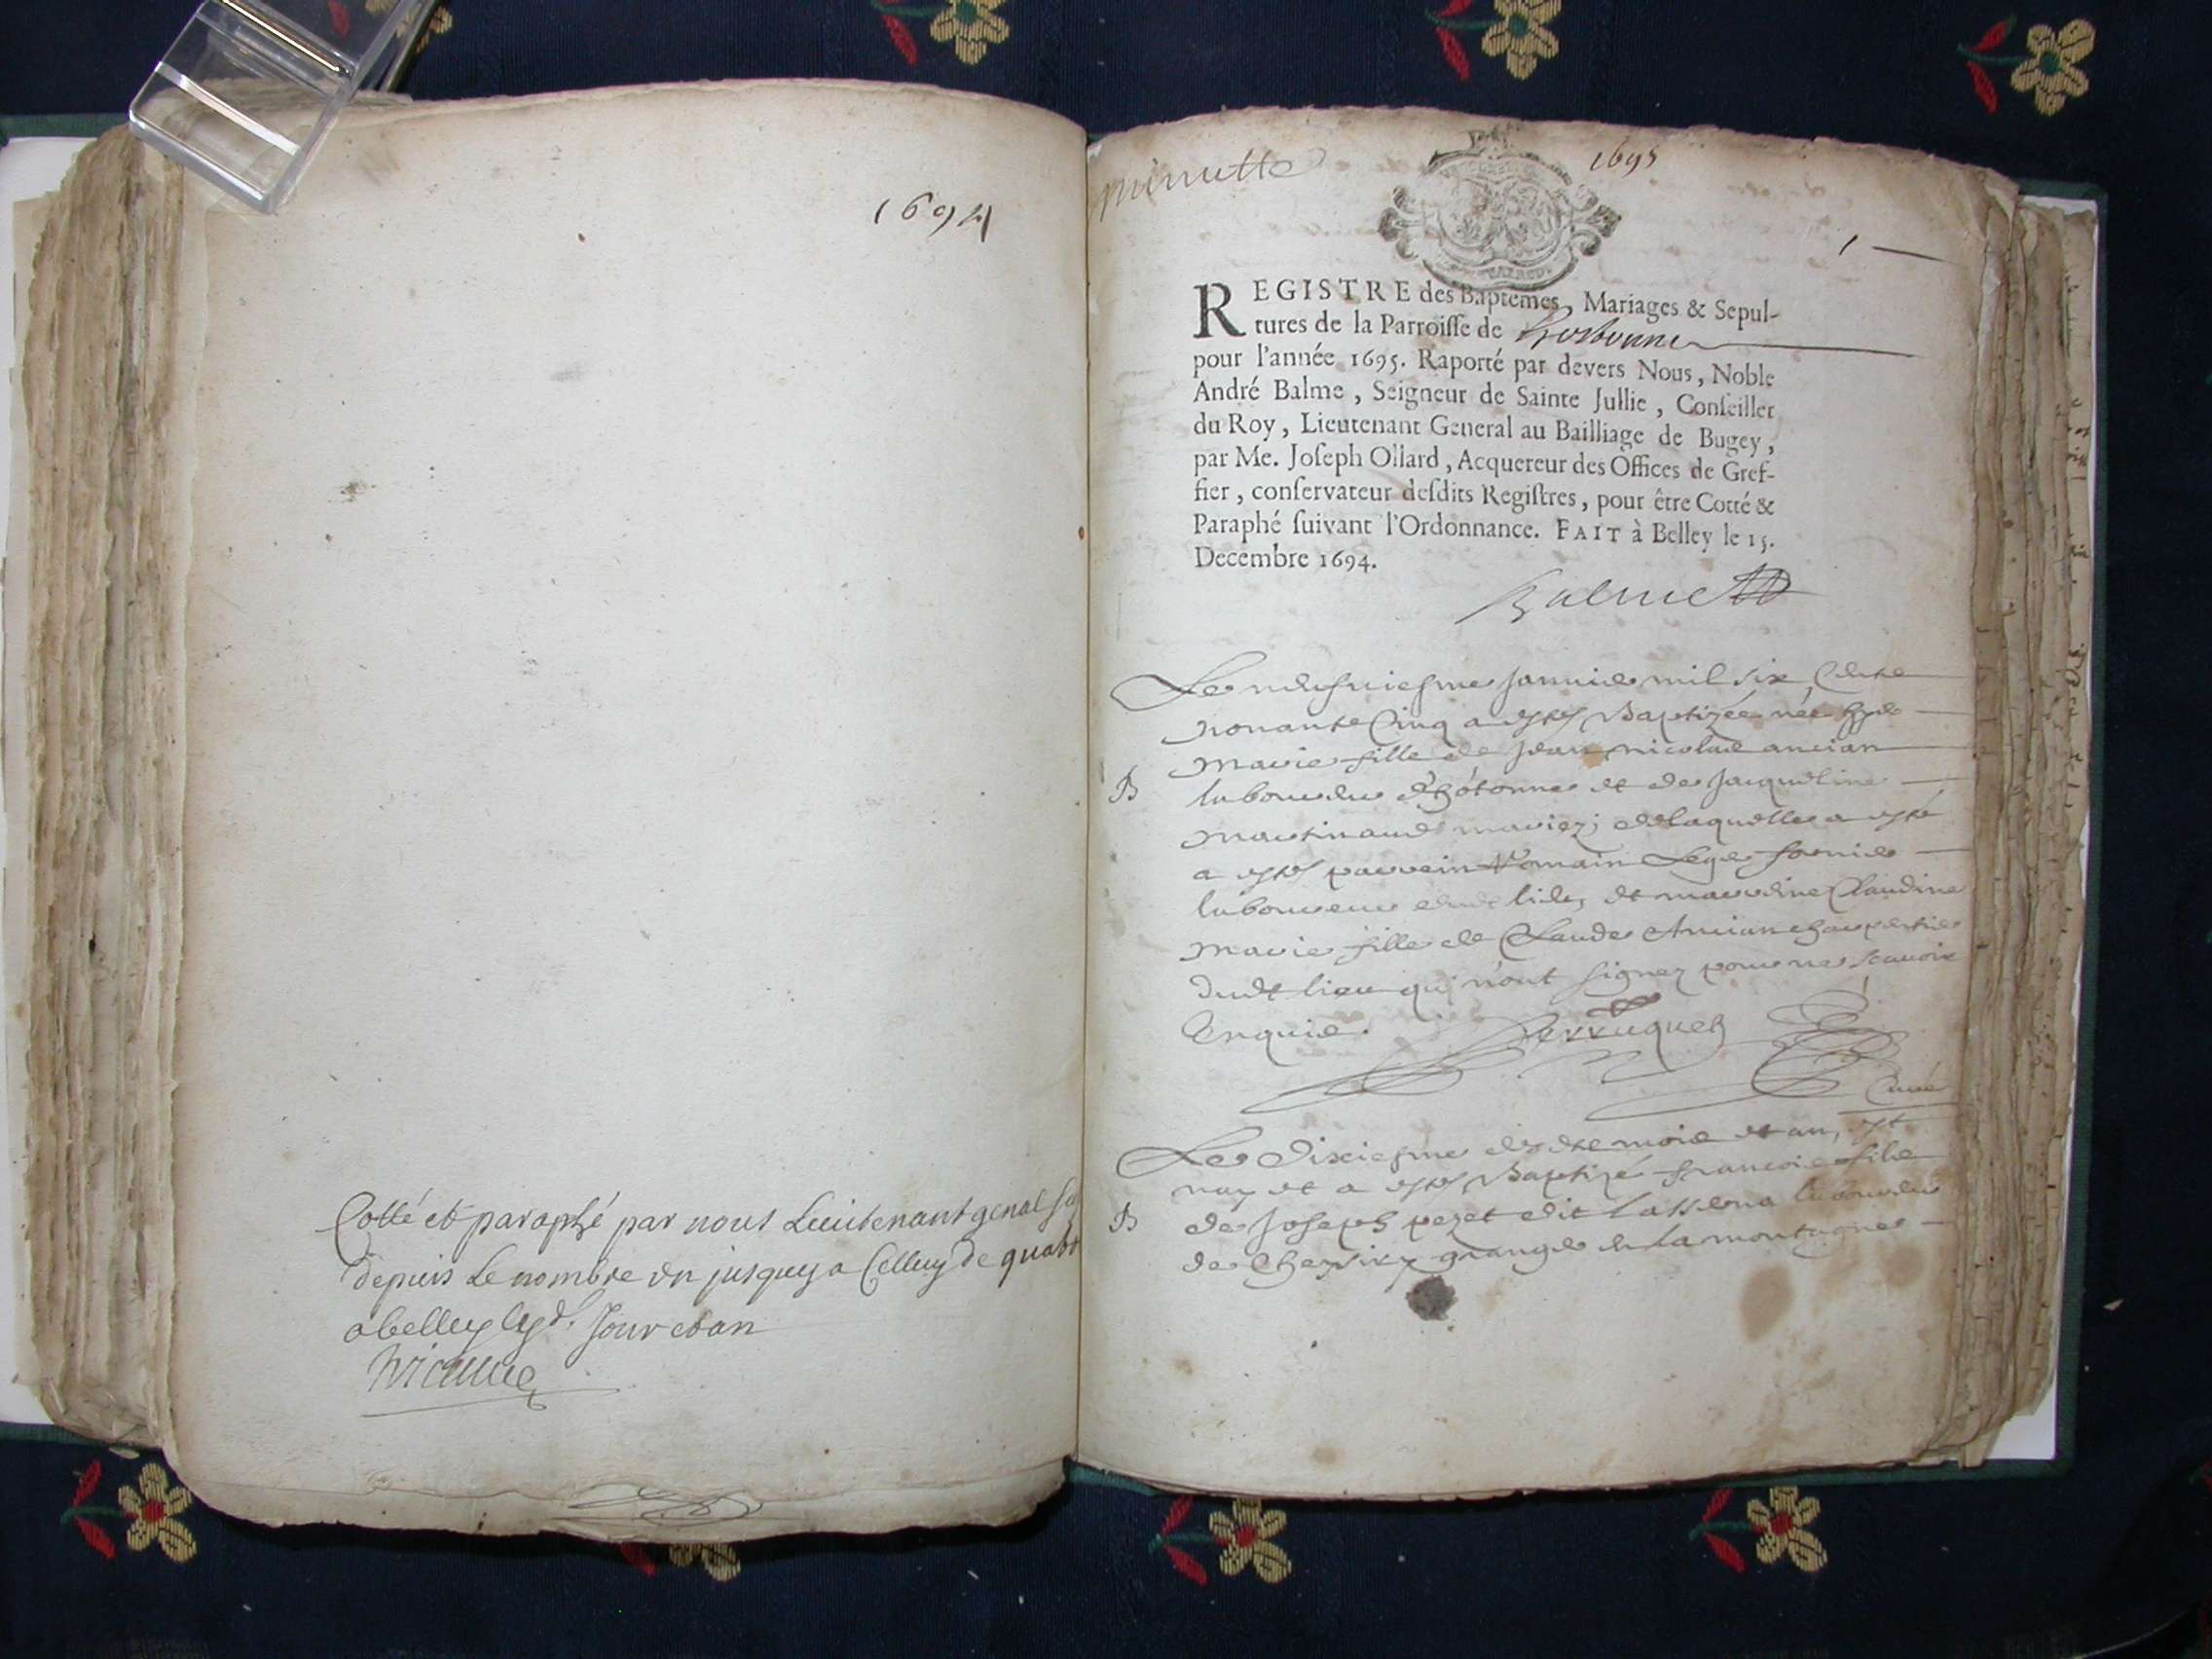 1694
Cotté et paraphé par nous Lieutenant genal
depuis Le nombre un jusques a Celluy de
a belley led. Jour et an
minutte
1695
1
REGISTRE des Baptemes, Mariages & Sepul-
tures de la Parroisse de
pour l'année 1695. Raporté par devers Nous, Noble
André Balme, Seigneur de Sainte Jullie, Conseiller
du Roy, Lieutenant General au Bailliage de Bugey,
par Me. Joseph Ollard, Acquereur des Offices de Gref-
fier, conservateur desdits Registres, pour être Cotté &
Paraphé suivant l'Ordonnance. FAIT à Belley le 15.
Decembre 1694.
Balme
Le neufviesme Janvier mil six Cents
nonante Cinq a esté Baptizée née hyer
Marie fille de Jean nicolas ancian
B laboureur d'hótonne et de Jacqueline
Martinand mariez; de laquelle a esté
a esté parrein Romain
laboureur dudt lieu, et marreine Claudine
Marie fille de Claude Ancian charpentier
dudt lieu qui n'ont signez pour ne scavoir
Enquis. Perruquet
Curé
Le dixiesme des dts mois et an, est
nay et a esté Baptizé francois fils
B de Joseph pezet dit laboureur
de granger de la montagne